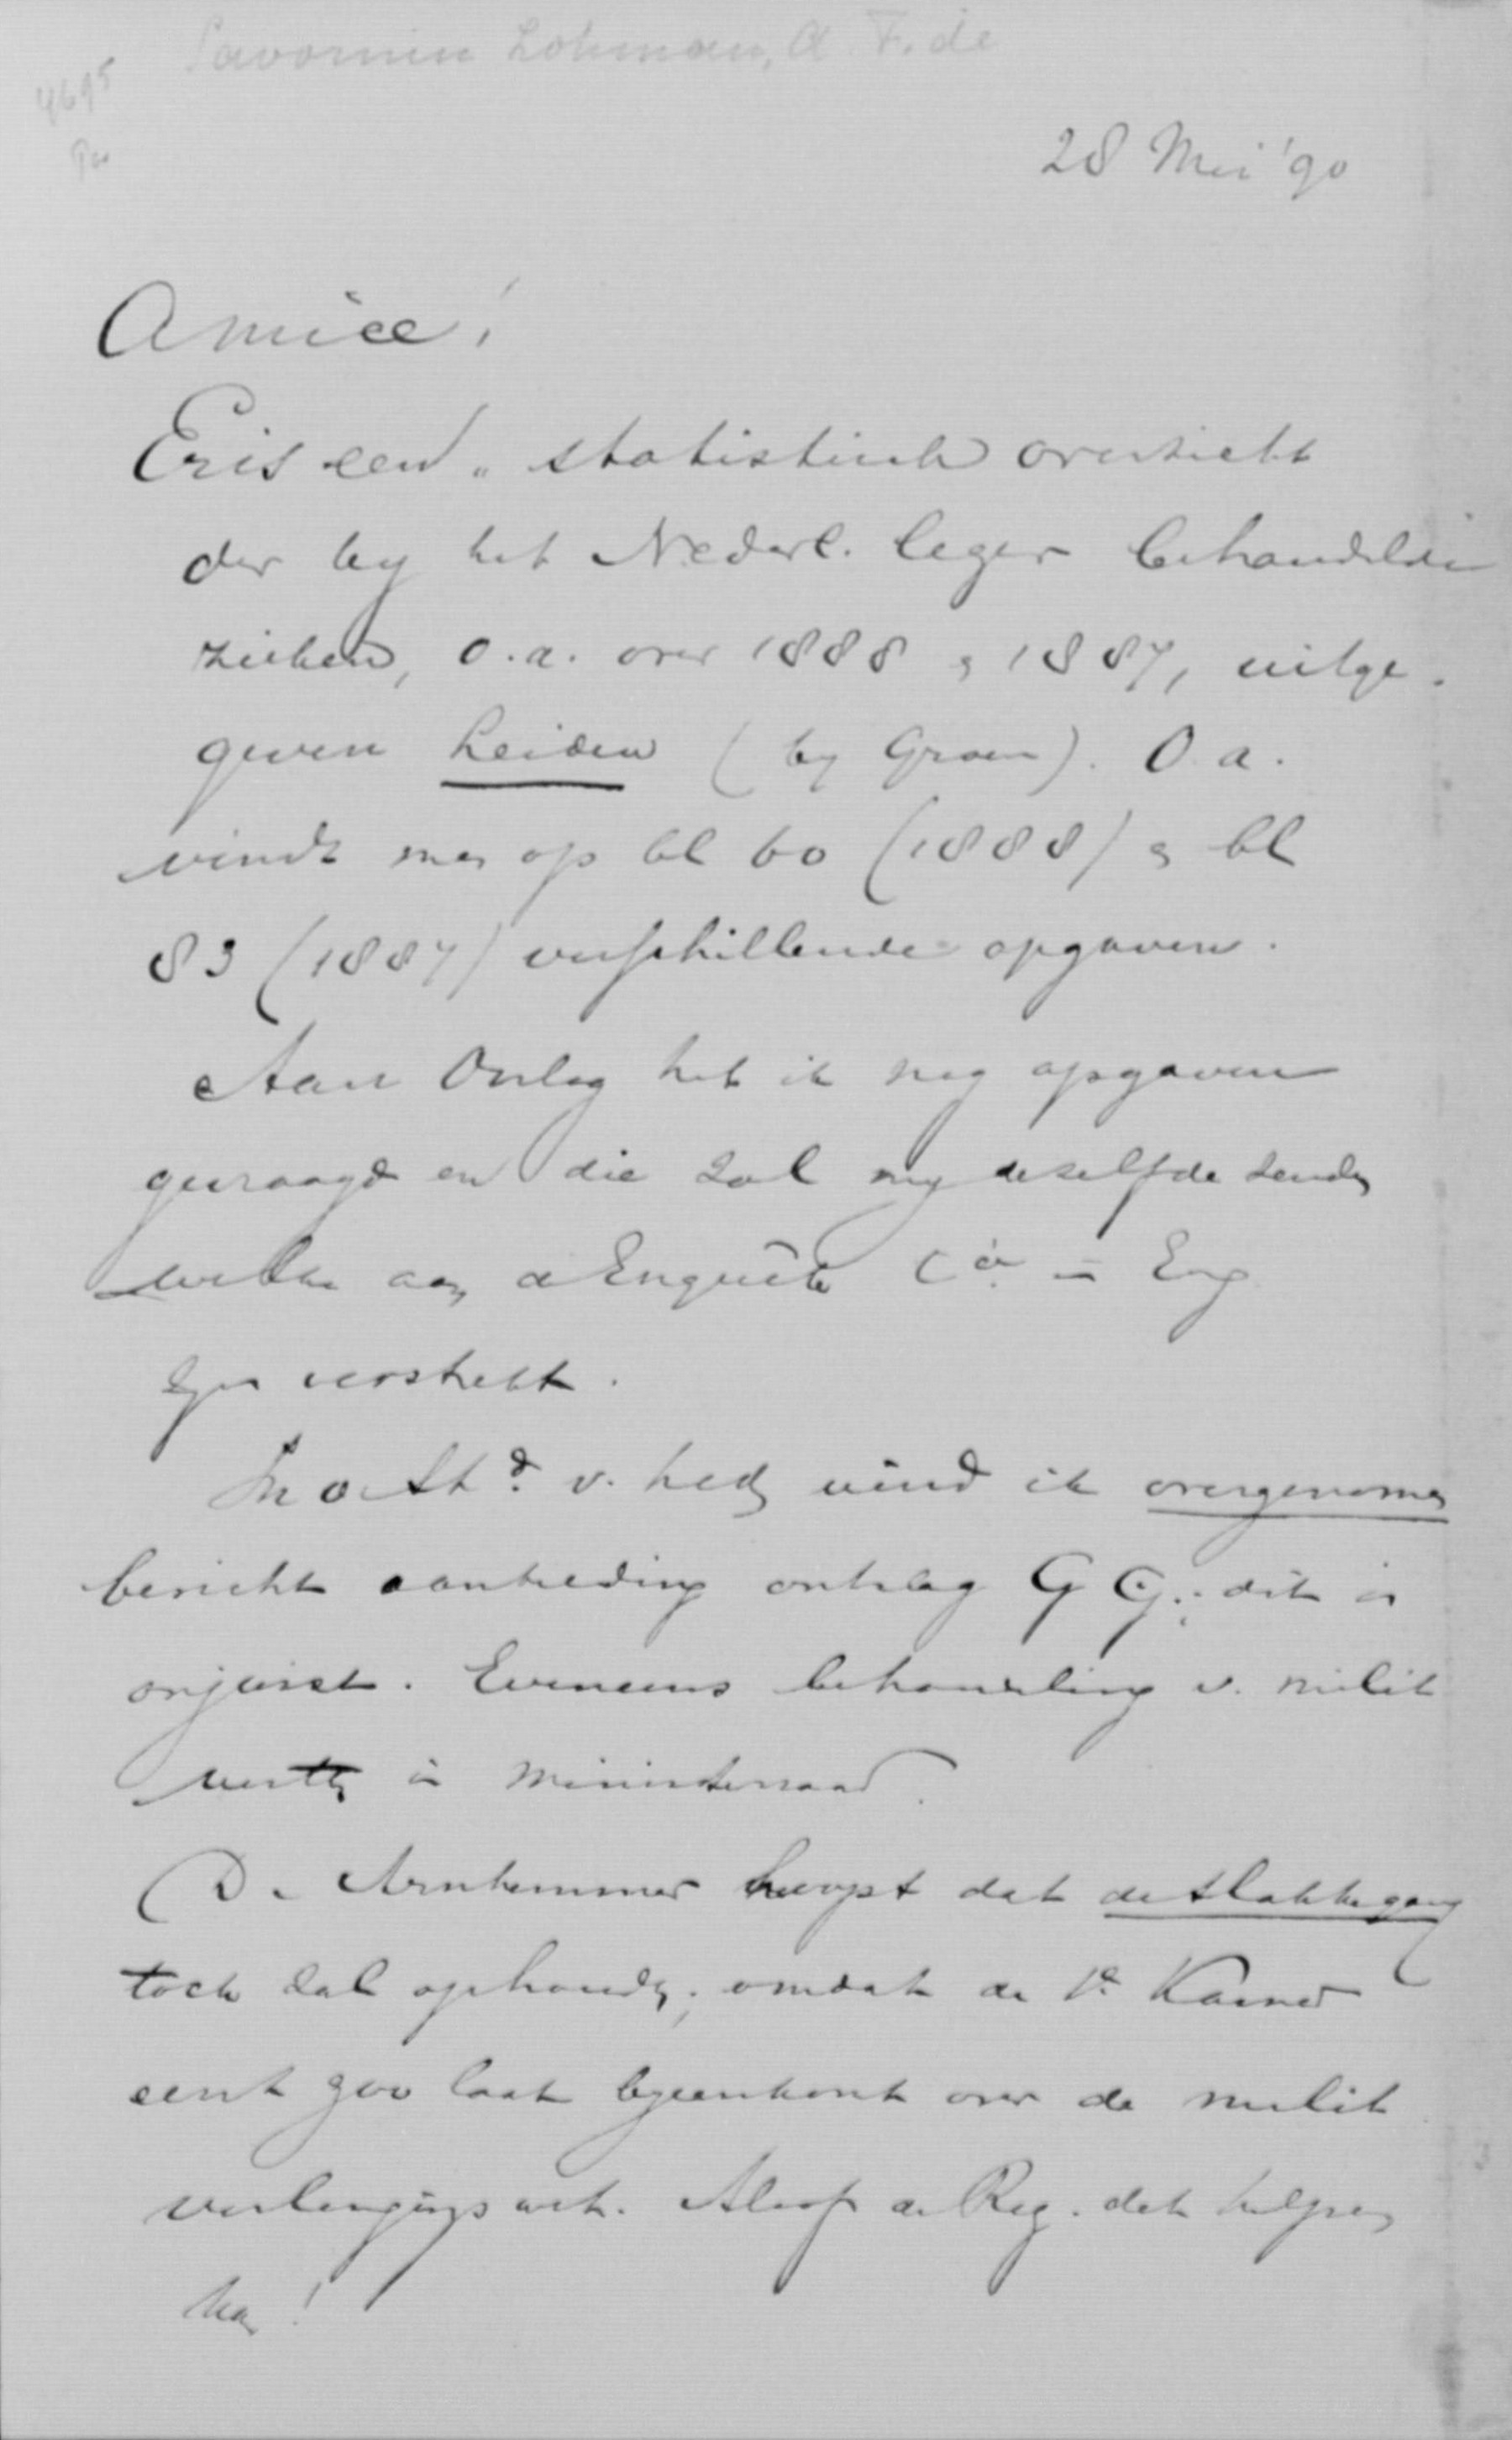 Savornin Lohman, A. F. de
4695
28 Mei '90
Amice!
Er is een „ statistisch overzicht
der by het Nederl. leger behandelde
zieken, o.a. over 1888 & 1887, uitge-
geven Leiden (by Groen). O.a.
vindt men op bl 60 (1888) & bl
83 (1887) verschillende opgaven.
Aan Oorlog heb ik nog opgaven
gevraagd en die zal my dezelfde zenden
welke aan de Enquête Cie in Eng
zyn verstrekt.
In de Std. v. heden vind ik overgenomen
bericht aanbieding ontslag G G.; dit is
onjuist. Eveneens behandeling v. milit
wetten in ministerraad.
De Arnhemmer hoopt dat de slakkegang
toch zal ophouden; omdat de 1e Kamer
eerst zoo laat byeenkomt over de milit
verlengings wet. Alsof de Reg. dat helpen
kan!